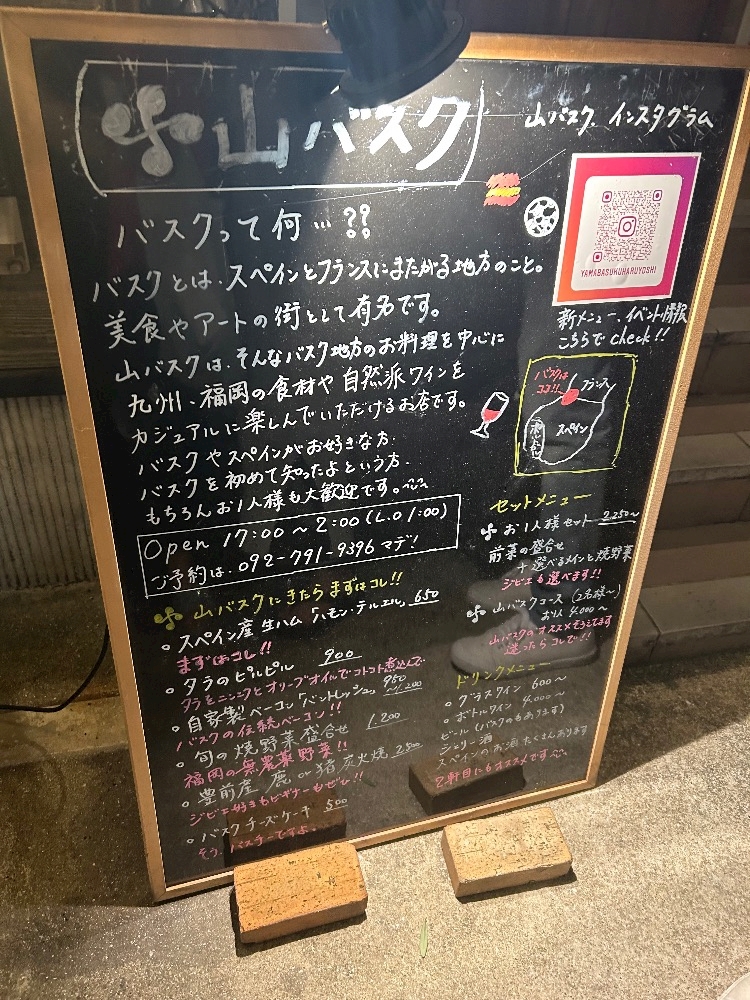 山バスク
山バスク インスタグラム
YAMABASUKUHARUYOSHI
新メニュー、イベント情報
こちらで check!!
バスクって何…??
バスクとは、スペインとフランスにまたがる地方のこと。
美食やアートの街として有名です。
山バスクは、そんなバスク地方のお料理を中心に
九州、福岡の食材や自然派ワインを
カジュアルに楽しんでいただけるお店です。
バスクやスペインがお好きな方、
バスクを初めて知ったよという方、
もちろんお1人様も大歓迎です。
Open 17:00～2:00(L.O 1:00)
ご予約は、092-791-9396 マデ!
バスクは
ココ!!
フランス
スペイン
ポルトガル
山バスクにきたらまずはコレ!!
○スペイン産 生ハム「ハモン・テルエル」 650
まずはコレ!!
○タラのピルピル 900
タラとニンニクとオリーブオイルでコトコト煮込んで
○自家製ベーコン「バントレッシュ」 950
～1,200
バスクの伝統ベーコン!!
○旬の焼野菜盛合せ 1,200
福岡の無農薬野菜!!
○豊前産 鹿 or 猪 炭火焼
ジビエ好きもビギナーもぜひ!!
○バスクチーズケーキ 500
そう、バスチーですよ。
セットメニュー
お1人様セット 2,250～
前菜の盛合せ
+選べるメインと焼野菜
ジビエも選べます!!
山バスクコース (2名様～)
お1人 4,000～
山バスクのオススメそろってます
迷ったらコレで!!
ドリンクメニュー
○グラスワイン 600～
○ボトルワイン 4,000～
ビール(バスクのもあります)
シェリー酒
スペインのお酒たくさんあります
2軒目にもオススメです